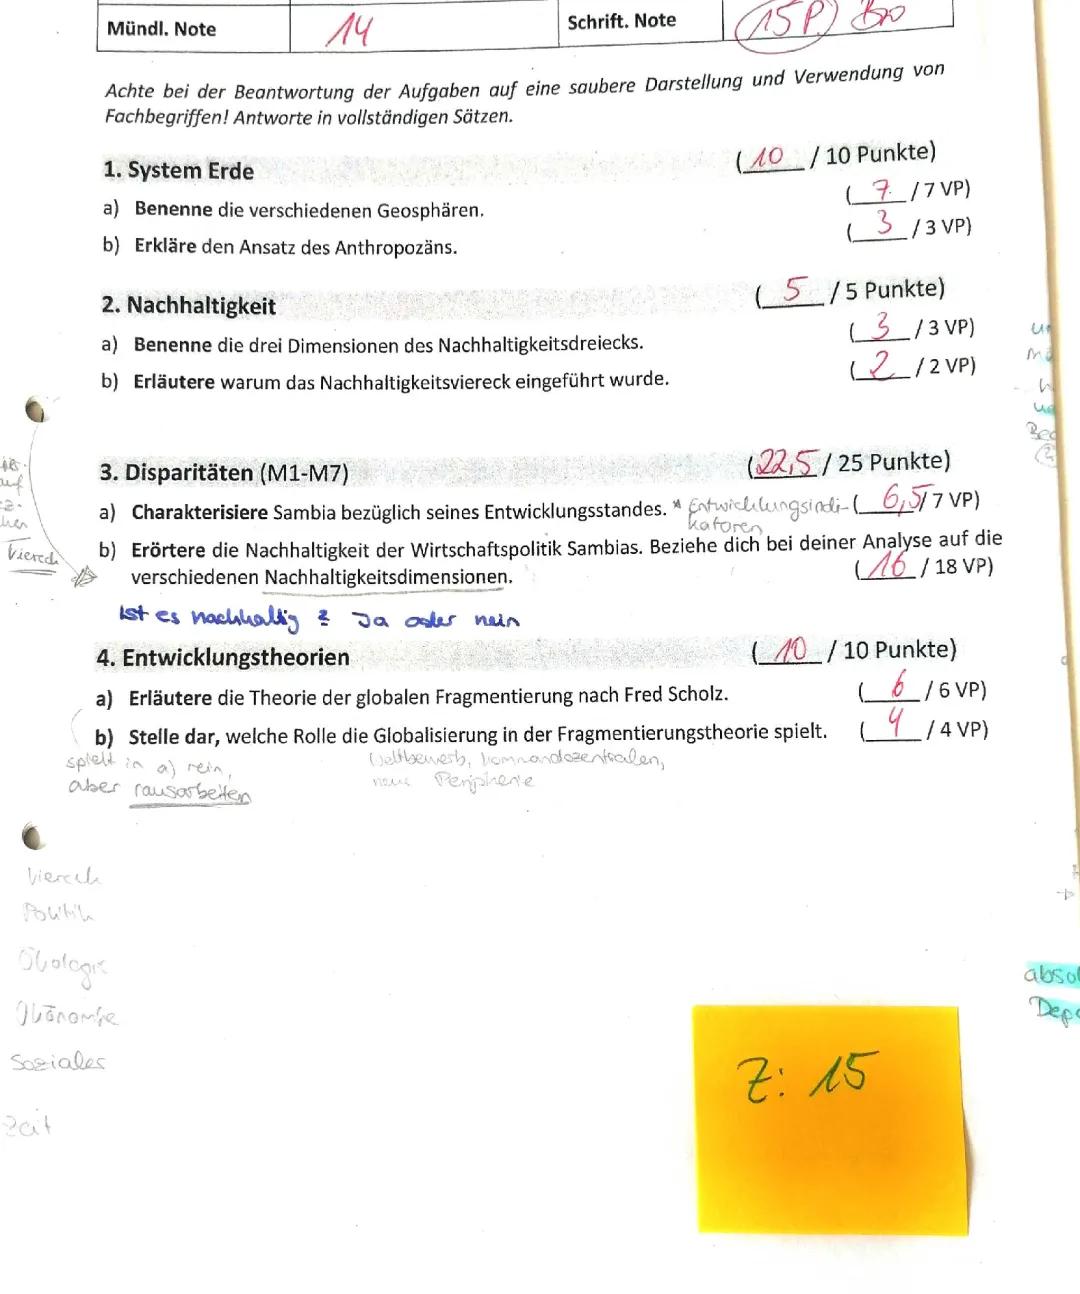 Mündl. Note 14 Schrift. Note 15 P.)
Achte bei der Beantwortung der Aufgaben auf eine saubere Darstellung und Verwendung von
Fachbegriffen! Antworte in vollständigen Sätzen.
1. System Erde ( 10 / 10 Punkte)
( 7 / 7 VP)
a) Benenne die verschiedenen Geosphären.
( 3 / 3 VP)
b) Erkläre den Ansatz des Anthropozäns.
2. Nachhaltigkeit ( 5 / 5 Punkte)
a) Benenne die drei Dimensionen des Nachhaltigkeitsdreiecks. ( 3 / 3 VP)
b) Erläutere warum das Nachhaltigkeitsviereck eingeführt wurde. ( 2 / 2 VP)
3. Disparitäten (M1-M7) (22,5 / 25 Punkte)
a) Charakterisiere Sambia bezüglich seines Entwicklungsstandes. * Entwicklungsindi- ( 6,5 / 7 VP)
katoren
Viereck
b) Erörtere die Nachhaltigkeit der Wirtschaftspolitik Sambias. Beziehe dich bei deiner Analyse auf die
verschiedenen Nachhaltigkeitsdimensionen. ( 16 / 18 VP)
Ist es nachhaltig ? Ja oder nein
4. Entwicklungstheorien ( 10 / 10 Punkte)
a) Erläutere die Theorie der globalen Fragmentierung nach Fred Scholz. ( 6 / 6 VP)
b) Stelle dar, welche Rolle die Globalisierung in der Fragmentierungstheorie spielt. ( 4 / 4 VP)
spielt in a) rein,
aber rausarbeiten
Wettbewerb, Kommandozentralen,
neue Peripherie
Viereck
Politik
Ökologie
Ökonomie
Soziales
Zeit
Z: 15